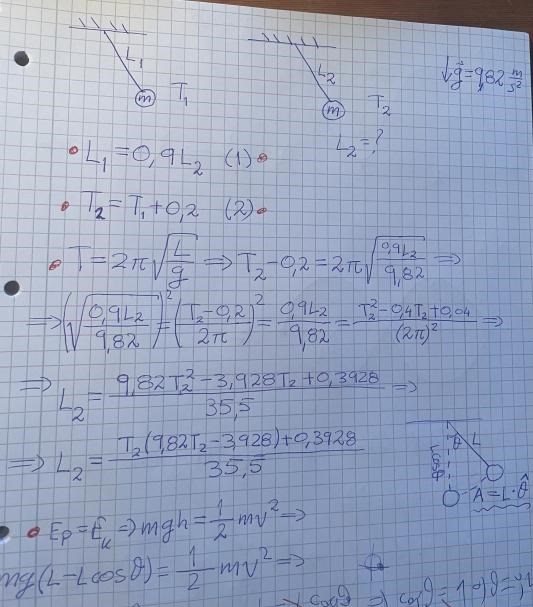 L₁ m T₁
L₂ m T₂
↓g⃗ = 9,82 m/s²
L₂ = ?
• L₁ = 0,9L₂ (1) •
• T₂ = T₁ + 0,2 (2) •
• T = 2π√(L/g) ⇒ T₂ - 0,2 = 2π√(0,9L₂/9,82) ⇒
⇒ (√(0,9L₂/9,82))² = ((T₂ - 0,2)/2π)² = 0,9L₂/9,82 = (T₂² - 0,4T₂ + 0,04)/(2π)² ⇒
⇒ L₂ = (9,82T₂² - 3,928T₂ + 0,3928)/35,5 ⇒
⇒ L₂ = (T₂(9,82T₂ - 3,928) + 0,3928)/35,5
θ L
A = L·θ̂
• Eₚ = Eₖ ⇒ mgh = 1/2 mv² ⇒
mg(L - Lcosθ) = 1/2 mv² ⇒